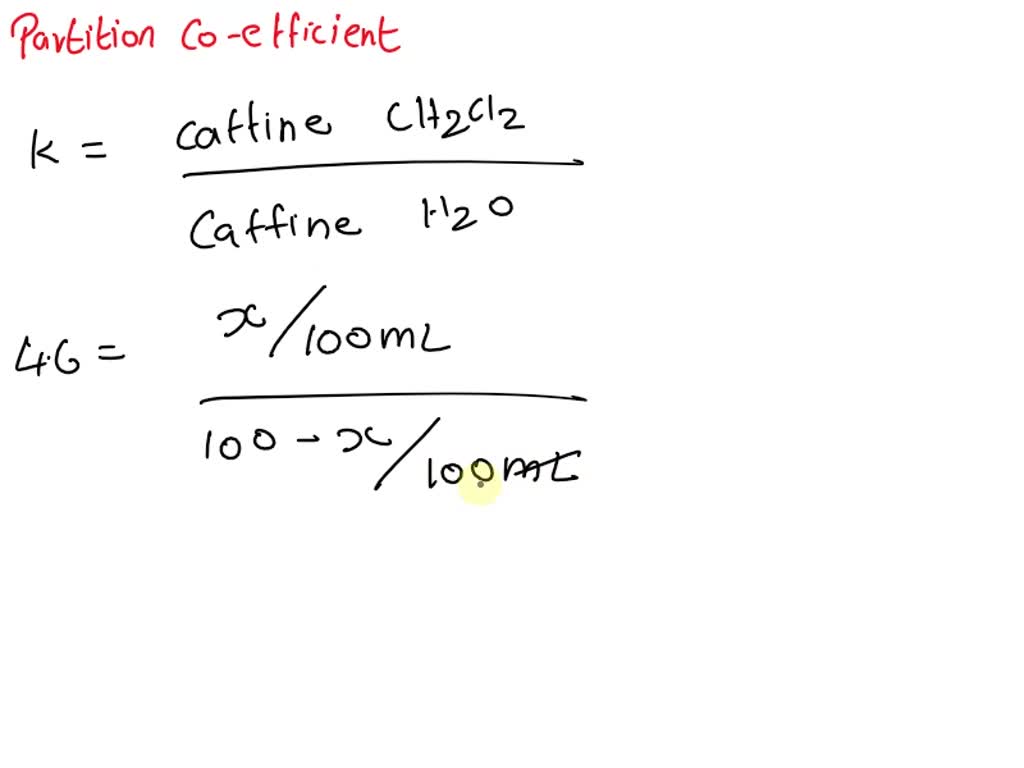 Partition Co-efficient
k = caffine CH2Cl2
Caffine H2O
4.6 = x/100mL
100 - x/100mL